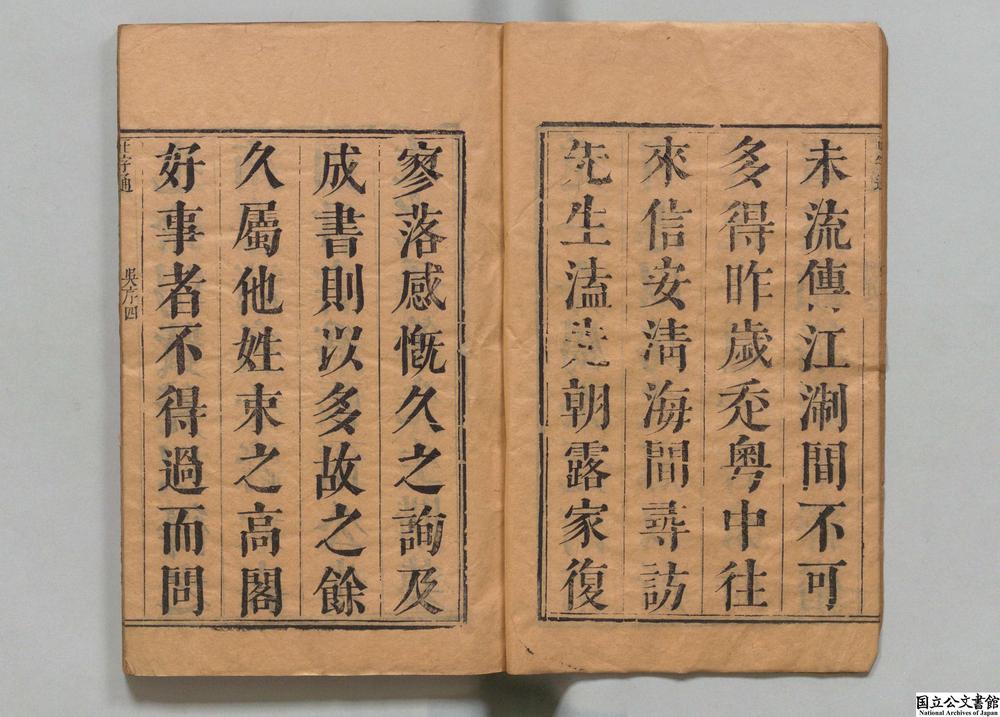 未流傳江淛間不可
多得昨歲𠫵粤中往
來信安清海間尋訪
先生溘先朝露家復
寥落感慨久之詢及
成書則以多故之餘
久屬他姓束之高閣
好事者不得過而問
正字通
吳序四
国立公文書館
National Archives of Japan